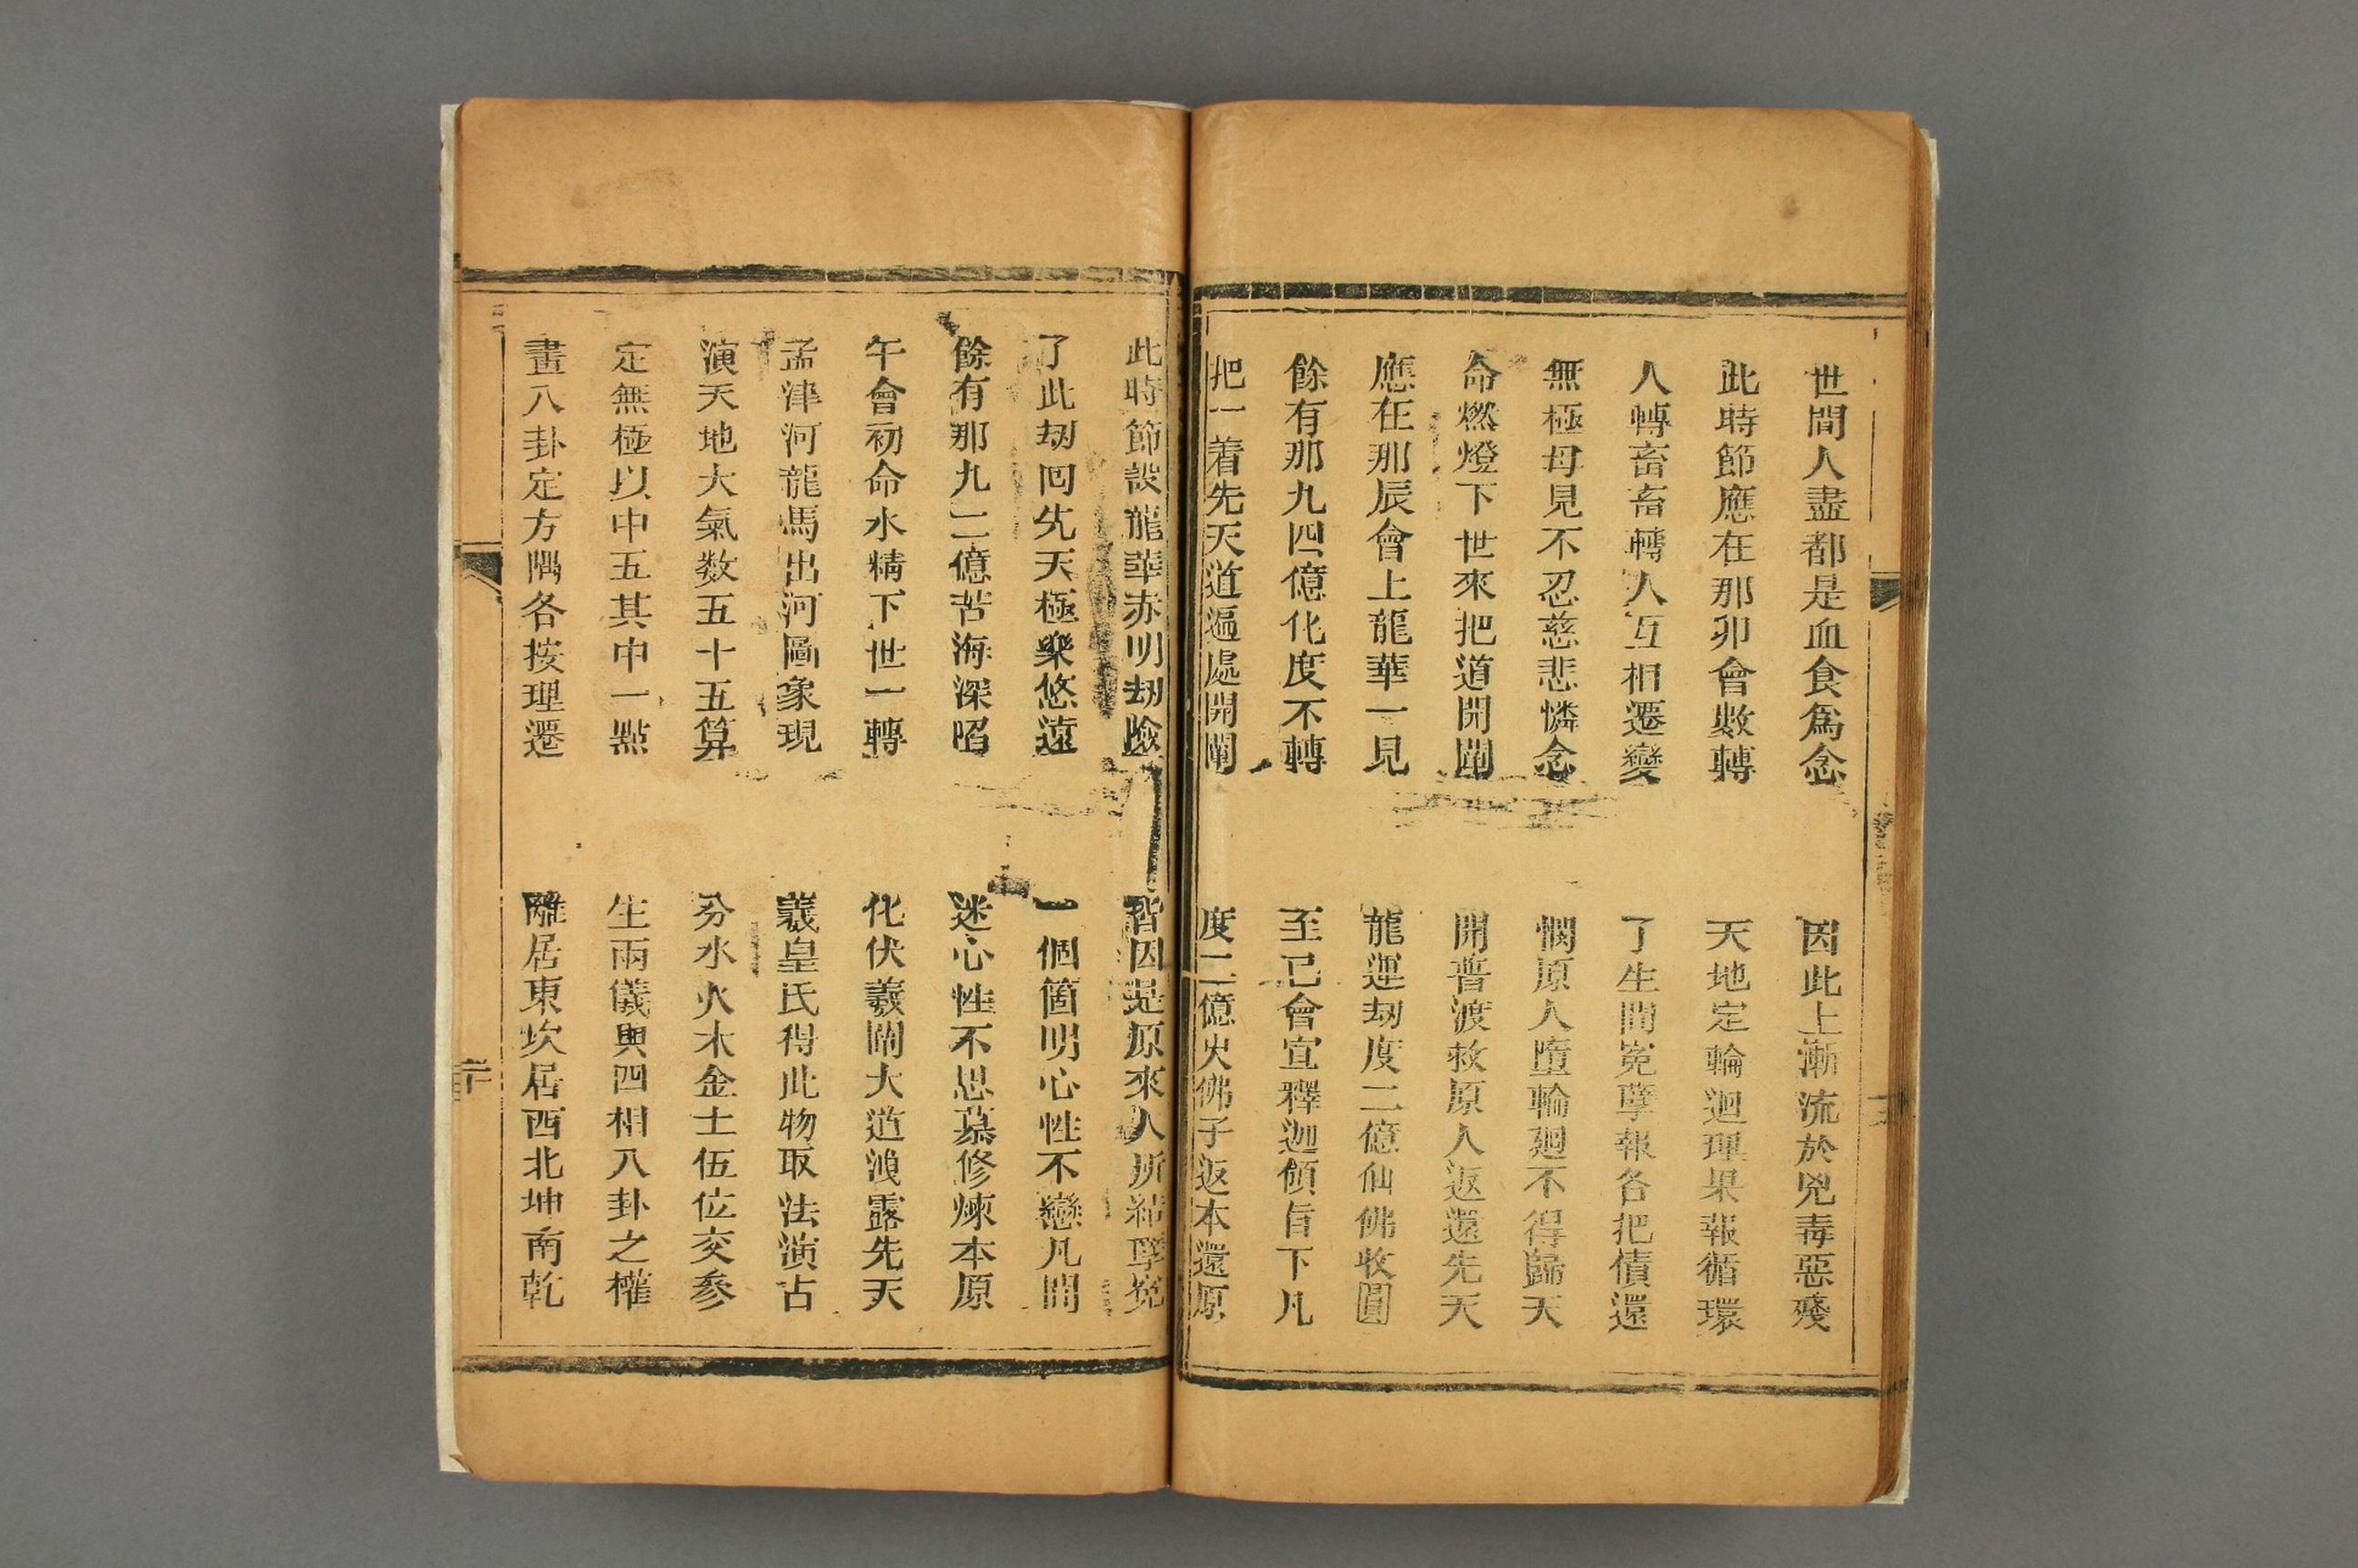 世間人盡都是血食爲念　因此上漸流於兇毒惡殘
此時節應在那卯會數轉　天地定輪迴理果報循環
人轉畜畜轉人互相遷變　了生間寃孽報各把債還
無極母見不忍慈悲憐念　憫原人墮輪廻不得歸天
命燃燈下世來把道開闡　開普渡救原人返還先天
應在那辰會上龍華一見　龍運刼度二億仙佛收圓
餘有那九四億化度不轉　至己會宣釋迦傾旨下凡
把一着先天道遍處開闡　度二億火佛子返本還原
此時節設龍華赤明刼險　皆因是原來人所結孽寃
了此刼回先天極樂悠遠　一個箇明心性不戀凡間
餘有那九二億苦海深陷　迷心性不思慕修煉本原
午會初命水精下世一轉　化伏羲開大道洩露先天
孟津河龍馬出河圖象現　羲皇氏得此物取法演占
演天地大氣数五十五算　分水火木金土伍位交參
定無極以中五其中一點　生兩儀與四相八卦之權
畫八卦定方隅各按理遷　離居東坎居西北坤南乾
二十